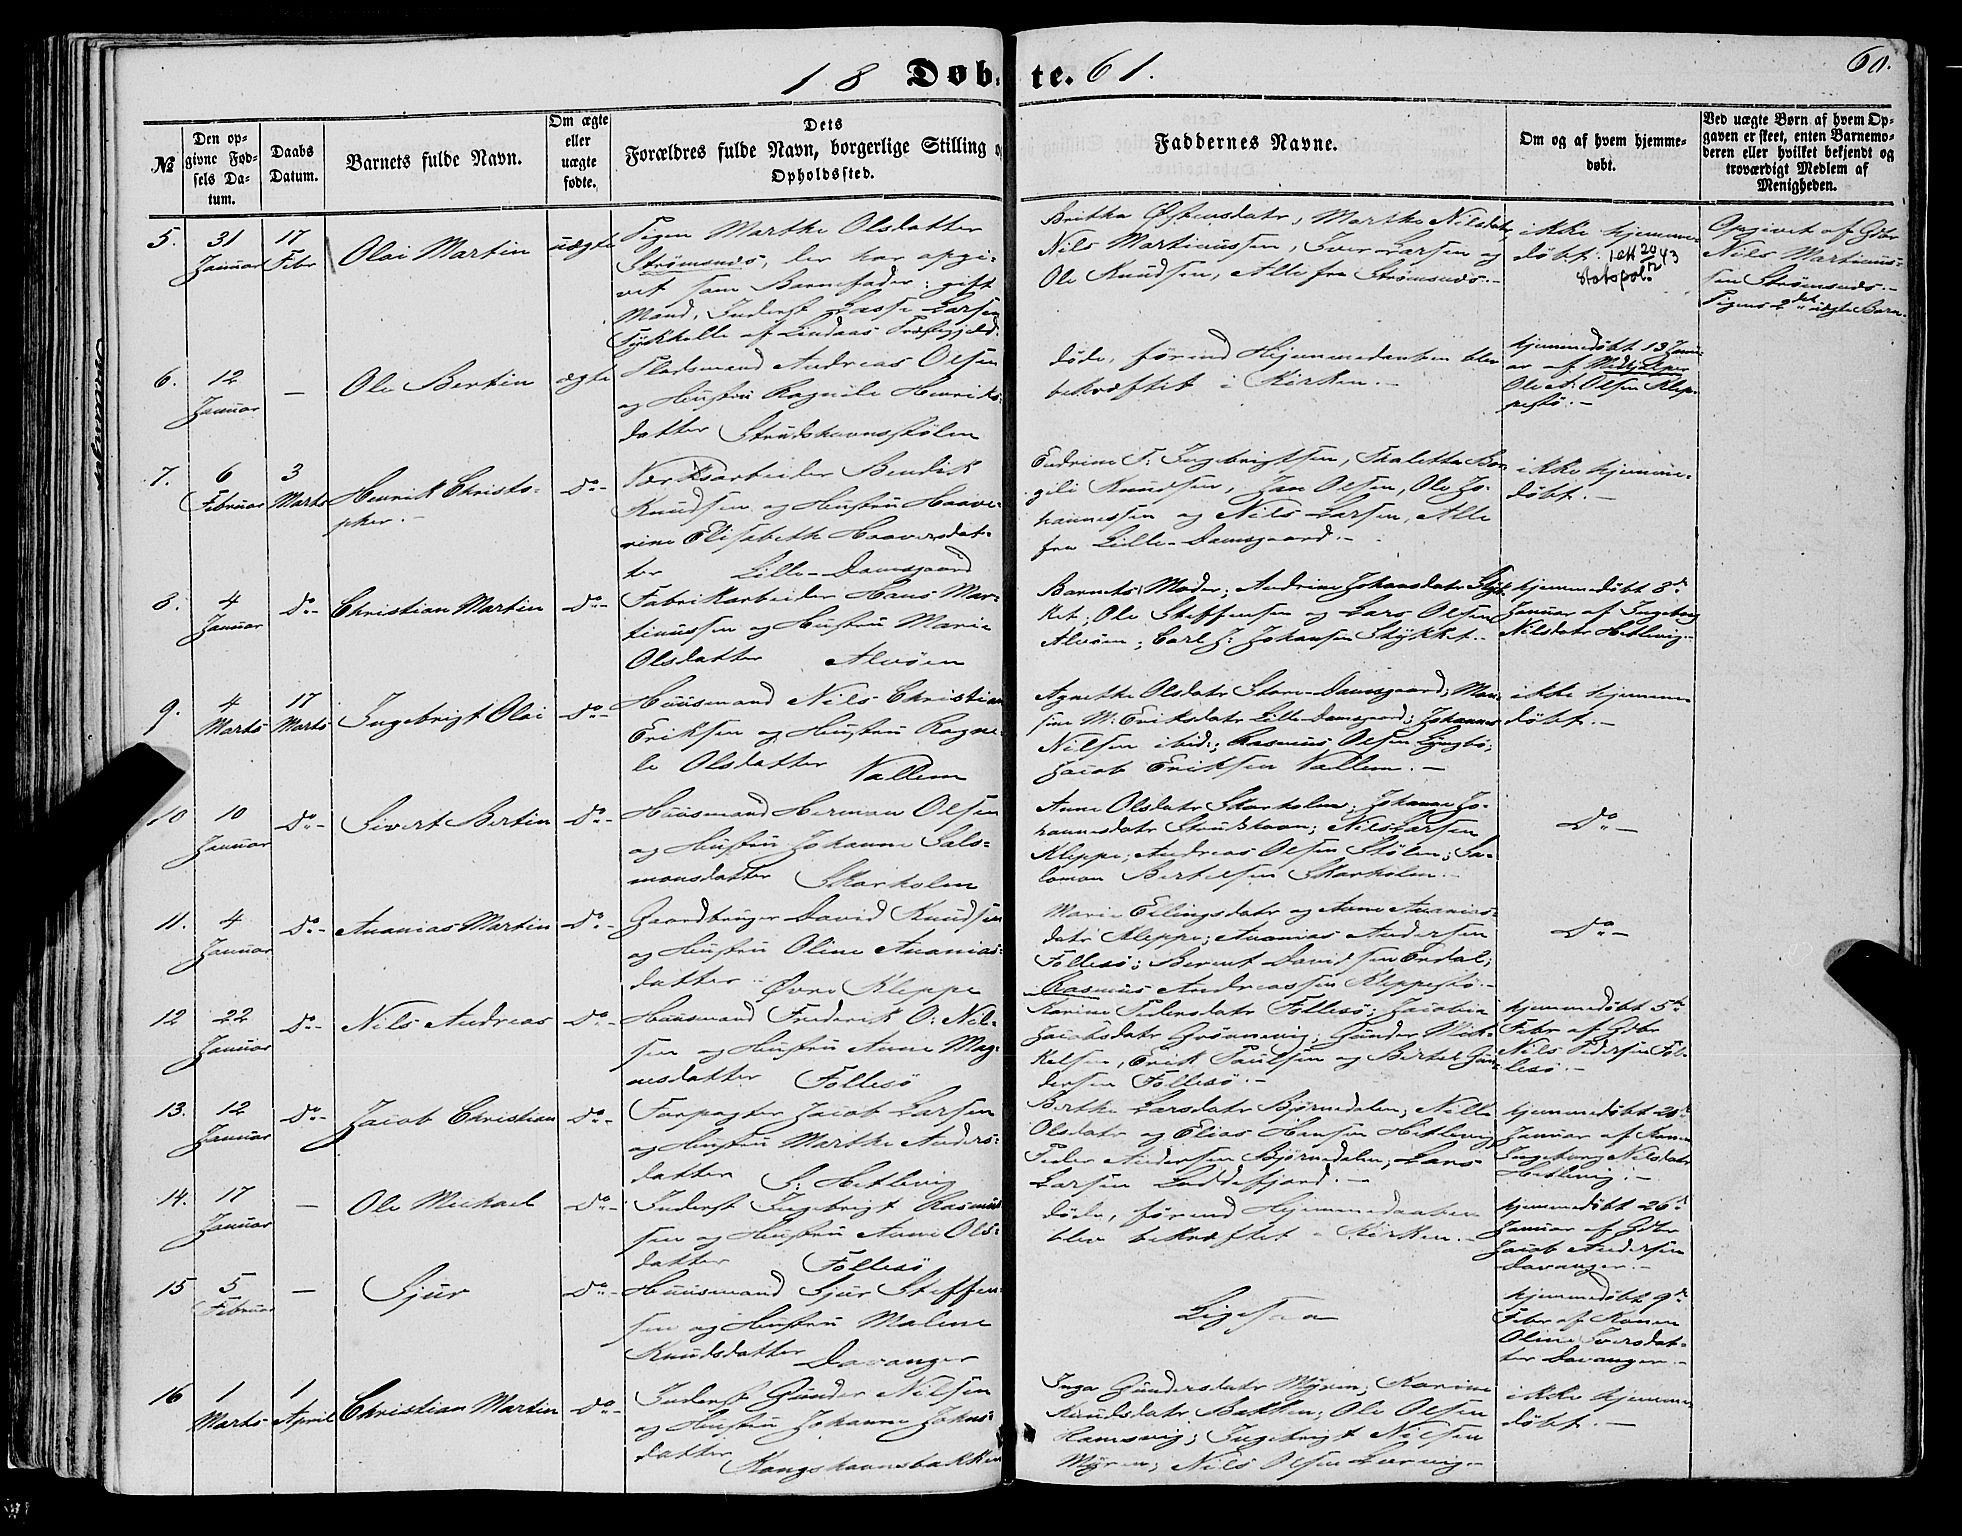 18 Døb-te. 61.
60.
№
Den opgivne Fødsels Datum.
Daabs Datum.
Barnets fulde Navn.
Om ægte eller uægte fødte.
Dets Forældres fulde Navn, borgerlige Stilling o Opholdssted.
Faddernes Navne.
Om og af hvem hjemmedøbt.
Ved uægte Børn af hvem Opgaven er skeet, enten Barnemoderen eller hvilket bekjendt og troværdigt Medlem af Menigheden.
5. 31 Januar
17 Febr
Olai Martin
uægte
Pigen Marthe Olsdatter
Strømsnæs, der har opgi-
vet som Barnefader: gift
Mand, Inderst Lasse Larsen
af Lindaas Præstegjeld.
Brithe Østensdatr, Marthe Nilsdatr,
Nils Martinussen, Iver Larsen og
Ole Knudsen, Alle fra Strømsnæs.-
ikke hjemme-
døbt.
Opgivet af Gdbr
Nils Martinus-
sen Strømsnæs.-
Pigens 2det uægte Barn.
6. 12 Januar
—
Ole Bertin
ægte
Pladsmand Andreas Olsen
og Hustru Ragnile Henriks-
datter Strudshavnsstølen
døde, førend Hjemmedaaben blev
bekræftet i Kirken.-
hjemmedøbt 13 Janu-
ar af Medhjelper
Ole A. Olsen Klep-
pestø.-
7. 6 Februar
3 Marts
Henrik Christo-
pher.-
Do-
Værksarbeider Bendik
Knudsen og Hustru Haave-
rine Elisabeth Haaversdat-
ter Lille-Damsgaard
Endrine T. Ingebrigtsen, Thaletta Bor-
gili Knudsen, Jan Olsen, Ole Jo-
hannessen og Nils Larsen, Alle
fra Lille-Damsgaard.-
ikke hjemme-
døbt.-
8. 4 Januar
Do-
Christian Martin
Do-
Fabrikarbeider Hans Mar-
tinussen og Hustru Marie
Olsdatter Alvøen
Barnets Moder; Andrine Johansdatr Styk-
ket; Ole Steffensen og Lars Olsen
Alvøen; Carl J. Johansen Stykket.-
hjemmedøbt 8de
Januar af Ingeborg
Nilsdatr Hetlevig.-
9. 4 Marts
17 Marts
Ingebrigt Olai
Do-
Huusmand Nils Christian
Eriksen og Hustru Ragne-
le Olsdatter Vallem
Agnethe Olsdatr Store-Damsgaard; Mar-
sine M. Eriksdatr Lille-Damsgaard; Johannes
Nilsen ibid.; Rasmus Olsen Lyngbø;
Jacob Eriksen Vallem.-
ikke hjemme-
døbt.-
10 10 Januar
Do-
Sivert Bertin
Do-
Huusmand Herman Olsen
og Hustru Johanne Salo-
monsdatter Skarholm
Anne Olsdatr Skarholm; Johanne Jo-
hannesdatr Strudshavn; Nils Larsen
Kleppe; Andreas Olsen Stølen; Sa-
lomon Bertelsen Skarholm.-
Do-
11. 4 Januar
Do-
Ananias Martin
Do-
Gaardbruger David Knudsen
og Hustru Oline Ananias-
datter Øvre Kleppe
Marie Erlingsdatr og Anne Ananias-
datr Kleppe; Ananias Andersen
Follesø; Bernt Davidsen Erdal;
Rasmus Andreassen Kleppestø.-
Do-
12 22 Januar
Do-
Nils Andreas
Do-
Huusmand Frederik O. Nil-
sen og Hustru Anne Mag-
nesdatter Follesø
Karine Pedersdatr Follesø; Jacobia
Jacobsdatr Grønnevig; Gunder Mik-
kelsen, Erik Paulsen og Bertel Gun-
dersen Follesø.-
hjemmedøbt 5te
Febr af Gdbr
Nils Pedersen Fol-
lesø.-
13. 12 Januar
Do-
Jacob Christian
Do-
Forpagter Jacob Larsen
og Hustru Marthe Anders-
datter S. Hetlevig
Berthe Larsdatr Bjørnedalen; Nille
Olsdatr og Elias Hansen Hetlevig;
Peder Andersen Bjørnedalen; Lars
Larsen Loddefjord.-
hjemmedøbt 20de
Januar af Konen
Ingeborg Nilsdatr
Hetlevig.-
14. 17 Januar
—
Ole Michael
Do-
Inderst Ingebrigt Rasmus-
sen og Hustru Anne Ols-
datter Follesø
døde, førend Hjemmedaaben
blev bekræftet i Kirken.-
hjemmedøbt 26de
Januar af Gdbr
Jacob Andersen
Davanger.-
15 5 Februar
—
Sjur
Do-
Huusmand Sjur Steffen-
sen og Hustru Malene
Knudsdatter Davanger
Ligesaa
hjemmedøbt 9de
Febr af Konen
Oline Iversdat-
ter Davanger.-
16 1 Marts
1 April
Christian Martin
Do-
Inderst Gunder Nilsen
og Hustru Johanne Johns-
datter Kongshavnsbakken
Inga Gundersdatr Myren; Karine
Knudsdatr Bakken; Ole Olsen
Hamsvig; Ingebrigt Nilsen
Myren; Nils Olsen
ikke hjemme-
døbt.-